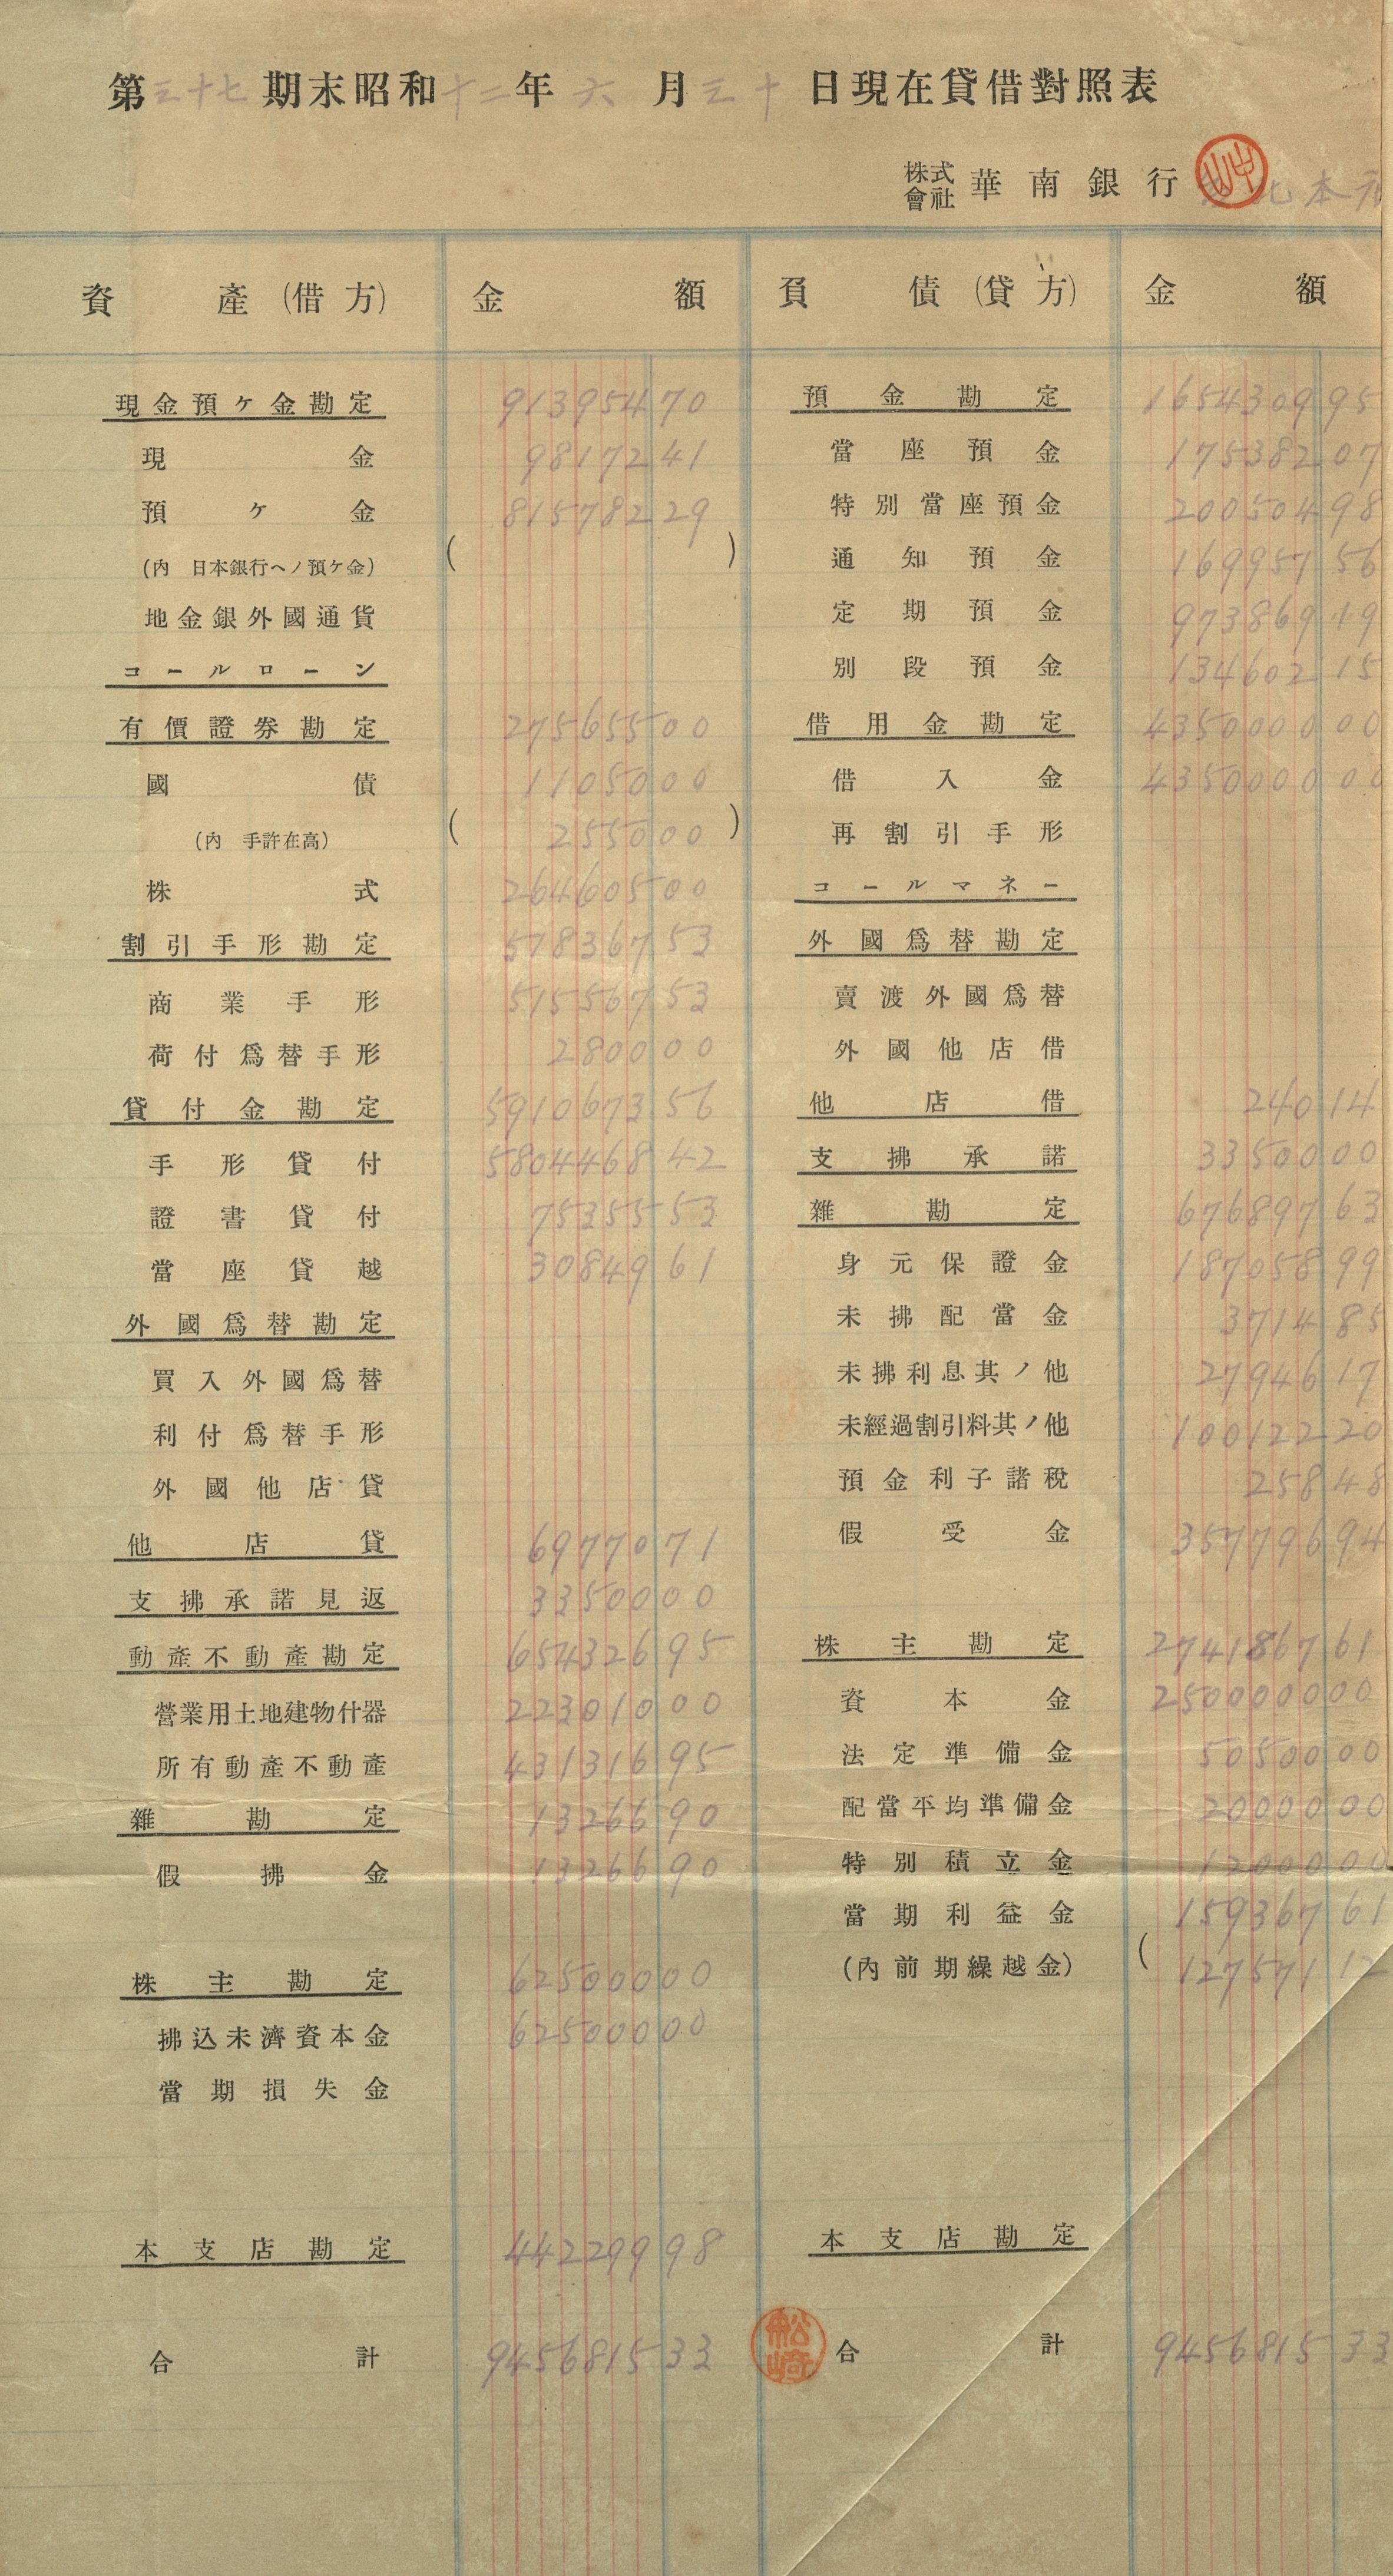 第三十七期末昭和十二年六月三十日現在貸借對照表
株式會社 華南銀行 北本
資產(借方) 金額 負債(貸方) 金額
現金預ケ金勘定 913954 70
現金 98172 41
預ケ金 815782 29
(內 日本銀行ヘノ預ケ金) ( )
地金銀外國通貨
コールローン
有價證券勘定 275655 00
國債 11050 00
(內 手許在高) ( 2550 00 )
株式 264605 00
割引手形勘定 518367 53
商業手形 515567 53
荷付爲替手形 2800 00
貸付金勘定 5910673 56
手形貸付 5804468 42
證書貸付 75355 53
當座貸越 30849 61
外國爲替勘定
買入外國爲替
利付爲替手形
外國他店貸
他店貸 69770 71
支拂承諾見返 33500 00
動產不動產勘定 654326 95
營業用土地建物什器 223010 00
所有動產不動產 431316 95
雜勘定 13266 90
假拂金 13266 90
株主勘定 625000 00
拂込未濟資本金 625000 00
當期損失金
本支店勘定 442299 98
合計 9456815 33
預金勘定 1654309 95
當座預金 175382 07
特別當座預金 200504 98
通知預金 169951 56
定期預金 973869 19
別段預金 134602 15
借用金勘定 4350000 00
借入金 4350000 00
再割引手形
コールマネー
外國爲替勘定
賣渡外國爲替
外國他店借
他店借 240 14
支拂承諾 33500 00
雜勘定 676897 63
身元保證金 187058 99
未拂配當金 3714 85
未拂利息其ノ他 27946 17
未經過割引料其ノ他 100122 20
預金利子諸稅 258 48
假受金 357796 94
株主勘定 2741867 61
資本金 2500000 00
法定準備金 50500 00
配當平均準備金 20000 00
特別積立金 12000 00
當期利益金 159367 61
(內前期繰越金) ( 127571 12
本支店勘定
松崎
合計 9456815 33